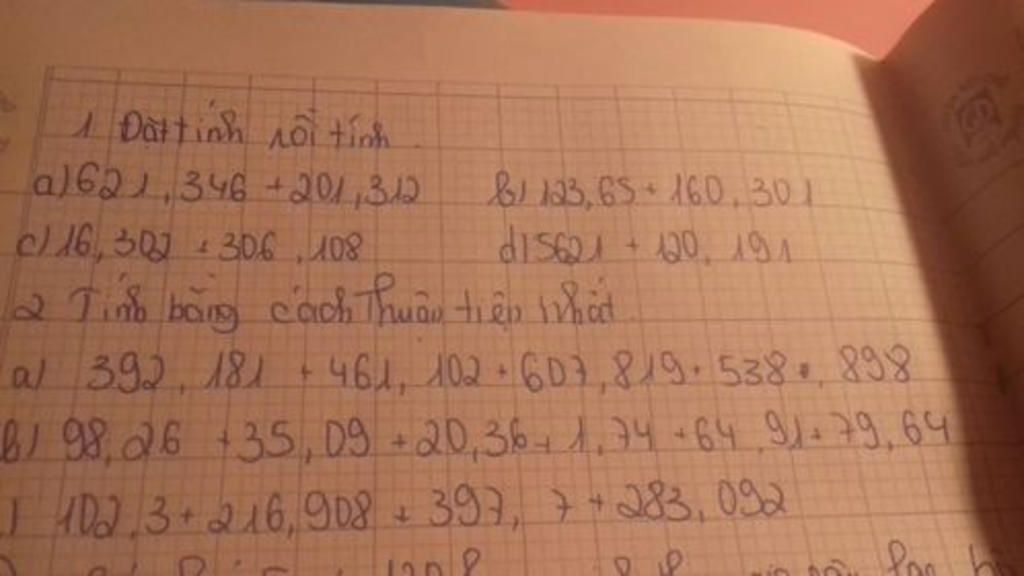 1 Đặt tính rồi tính.
a) 621,346 + 201,312 b) 123,65 + 160,301
c) 16,302 + 306,108 d) 5621 + 120,191
2 Tính bằng cách thuận tiện nhất.
a) 392,181 + 461,102 + 607,819 + 538,898
b) 98,26 + 35,09 + 20,36 + 1,74 + 64,91 + 79,64
) 102,3 + 216,908 + 397,7 + 283,092